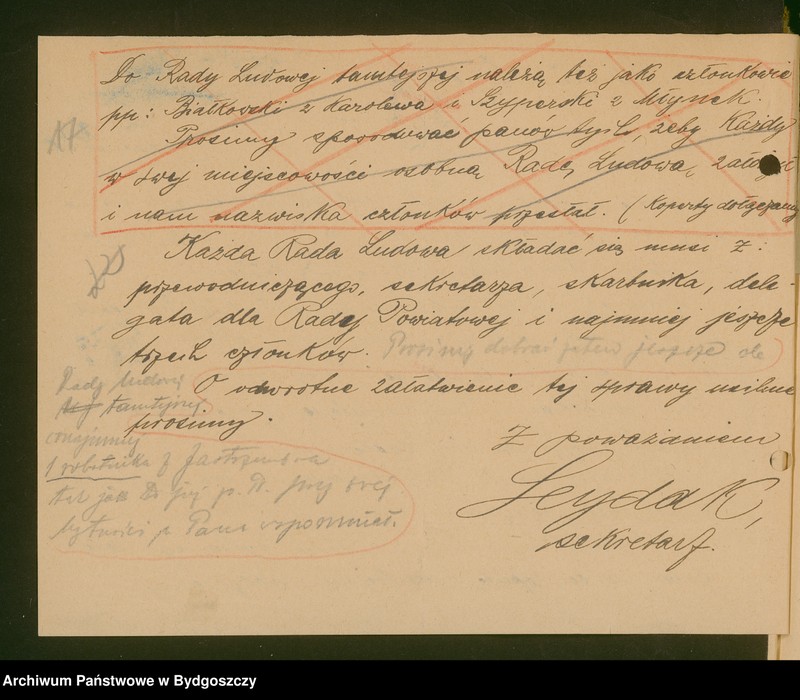 Do Rady Ludowej tamtejszej należą też jako członkowie
pp: Białkowski z Karolewa i Szyperski z Młynek.
17
Prosimy spowodować panów tych, żeby Każdy
w swej miejscowości osobną Radę Ludową założył
i nam nazwiska członków przesłał. (Koperty dołączamy
Każda Rada Ludowa składać się musi z:
przewodniczącego, sekretarza, skarbnika, dele-
gata dla Rady Powiatowej i najmniej jeszcze
trzech członków. Prosimy dobrać zatem jeszcze do
Rady Ludowej
tamtejszej
O odwrotne załatwienie tej sprawy usilnie
prosimy.
conajmniej
1 robotnika z Jastrzembca
tak jak
p. przy swej
bytności p. Pana wspomniał.
Z poważaniem
Leydak,
sekretarz.
Archiwum Państwowe w Bydgoszczy